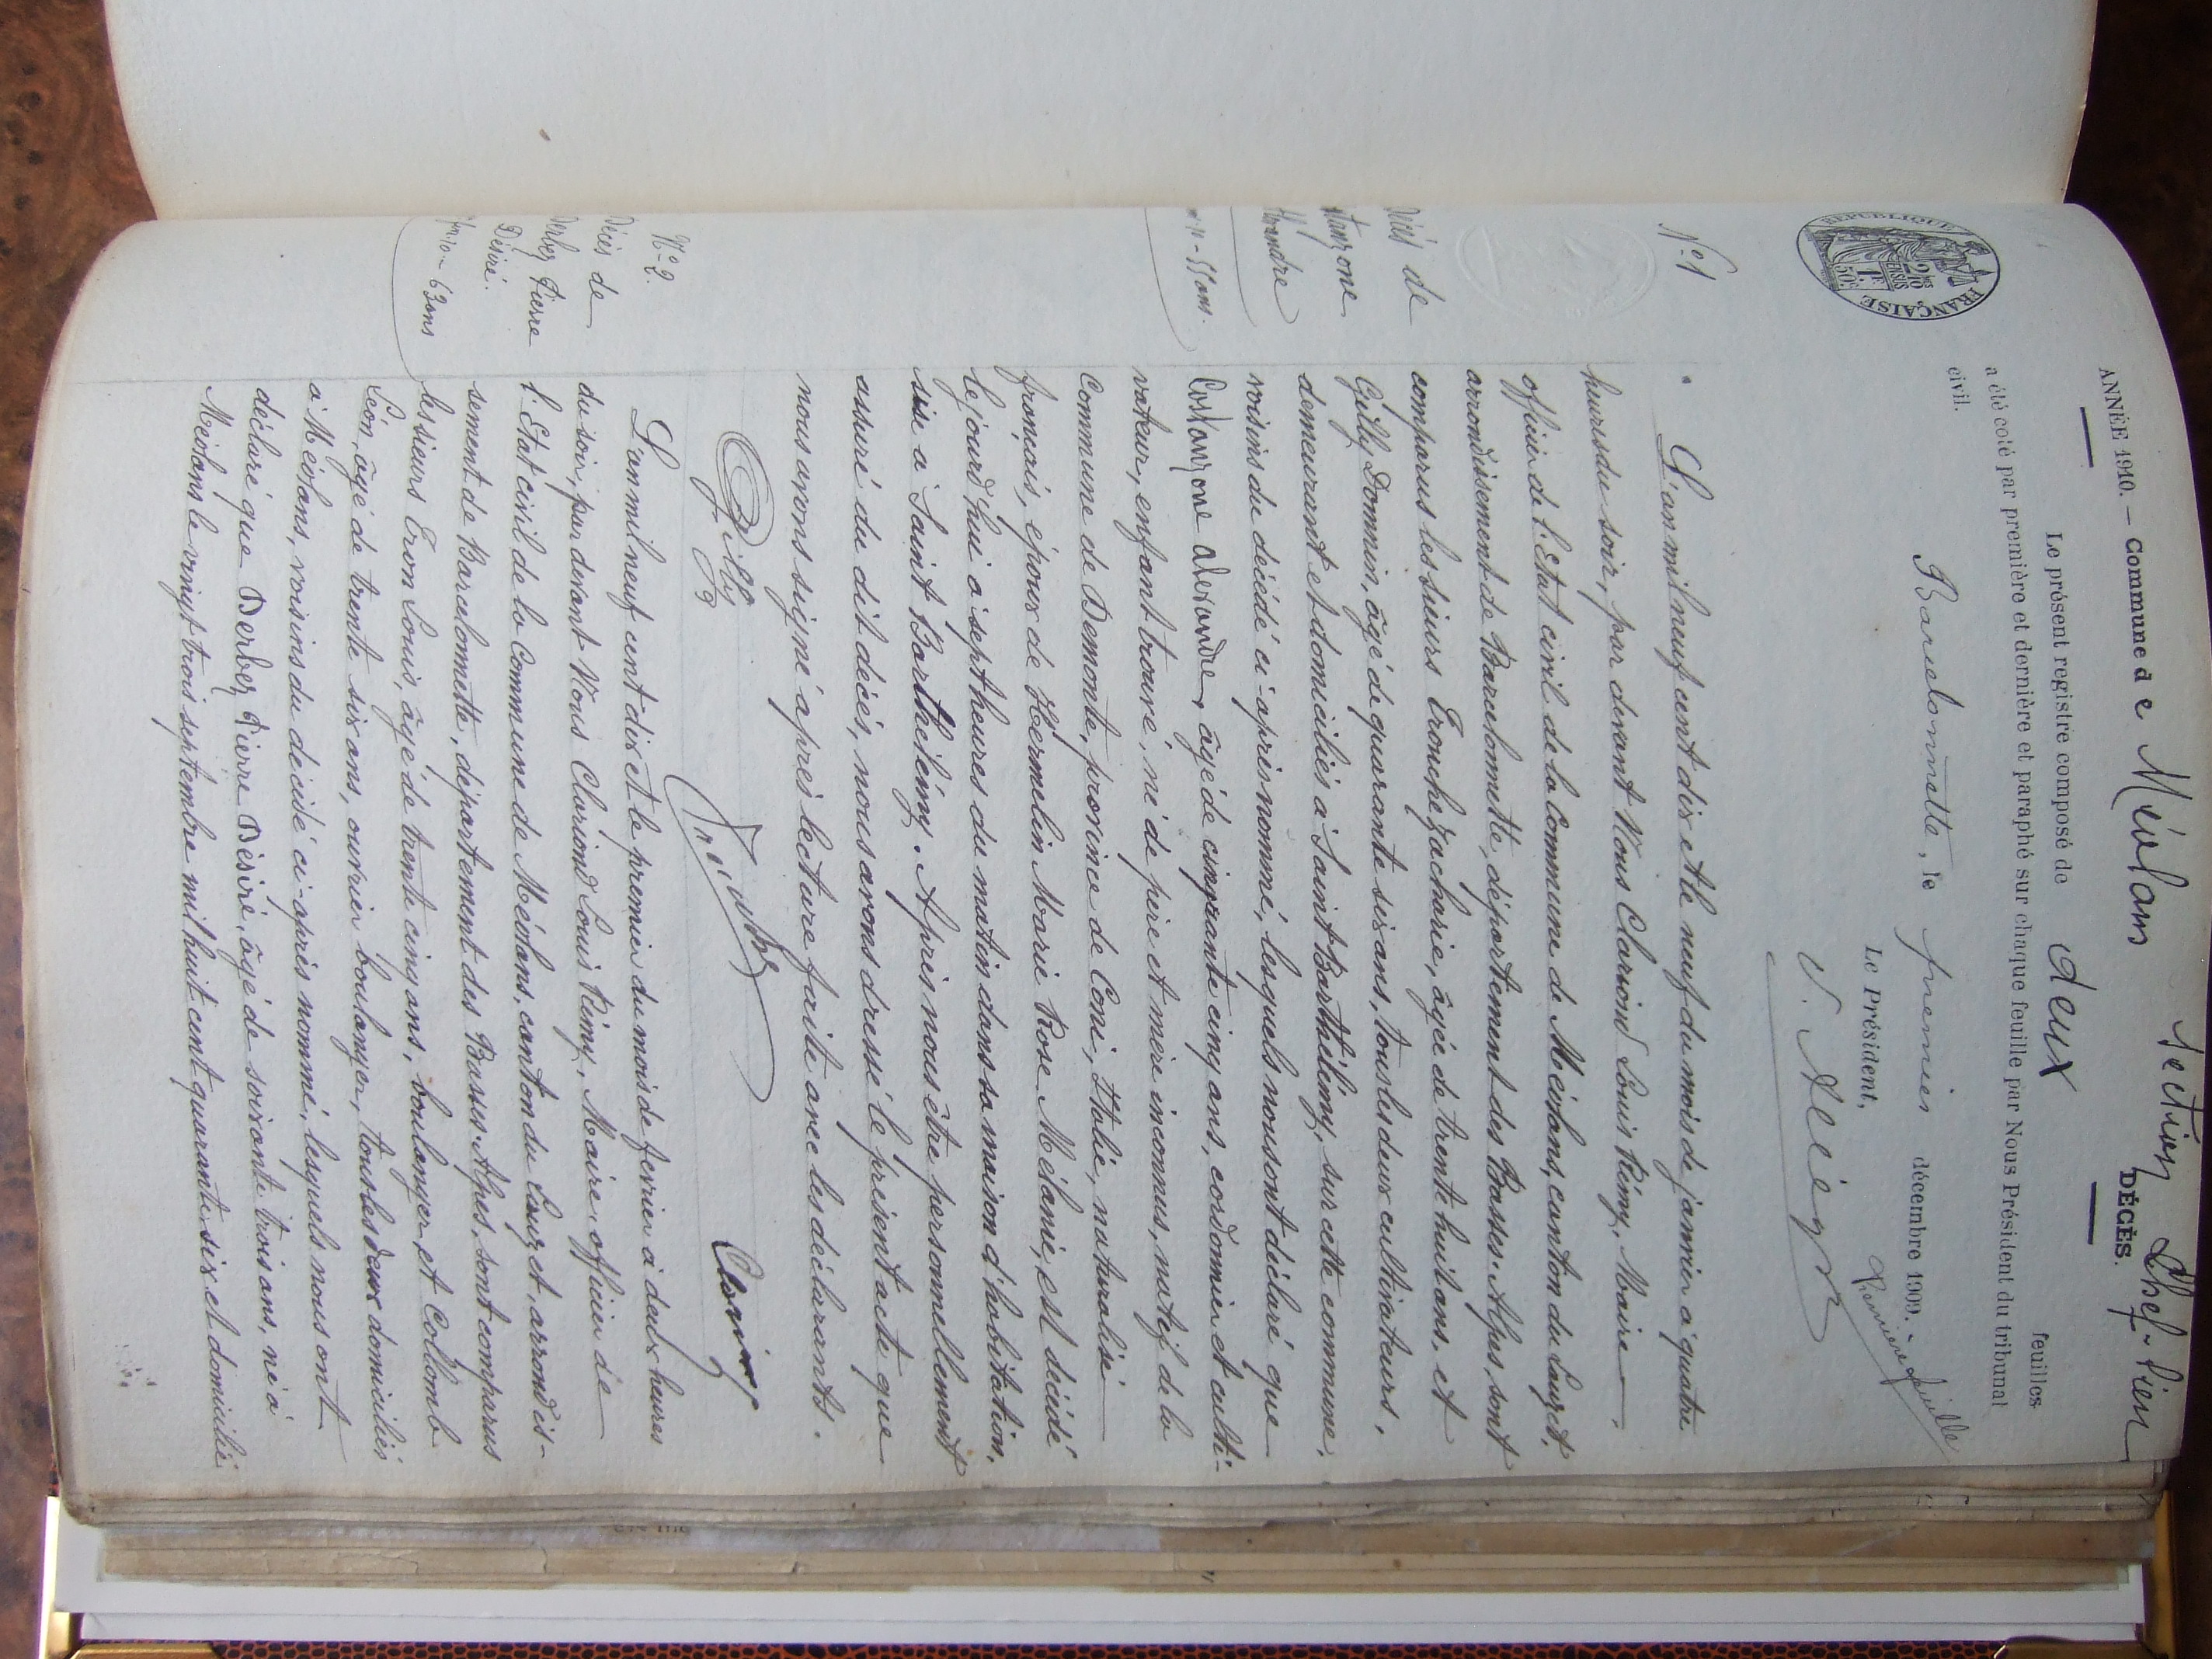 Section Chef-lieu
ANNÉE 1910. — Commune de Méolans DÉCÈS.
Le présent registre composé de deux feuilles
a été coté par première et dernière et paraphé sur chaque feuille par Nous Président du tribunal
civil.
Barcelonnette, le premier décembre 1909.
Première feuille
Le Président,
RÉPUBLIQUE FRANÇAISE
2/10 EN SUS
1F 50c
N° 1
Décès de
Alexandre
55 ans.
L'an mil neuf cent dix et le neuf du mois de janvier à quatre
heures du soir, par devant Nous Clariond Louis Rémy, Maire
officier de l'Etat civil de la Commune de Méolans, canton du Lauzet,
arrondissement de Barcelonnette, département des Basses-Alpes, sont
comparus les sieurs Tronche Zacharie, âgé de trente huit ans, et
Gilly Domnin, âgé de quarante six ans, tous les deux cultivateurs,
demeurant et domiciliés à Saint Barthélémy, sur cette commune,
voisins du décédé ci-après nommé, lesquels nous ont déclaré que
Costanzone Alexandre, âgé de cinquante cinq ans, cordonnier et culti-
vateur, enfant trouvé, né de père et mère inconnus, natif de la
commune de Demonte, province de Coni, Italie, naturalisé
français, époux de Hermelin Marie Rose Mélanie, est décédé
le jourd'hui à sept heures du matin dans sa maison d'habitation,
sise à Saint Barthélémy. Après nous être personnellement
assuré du dit décès, nous avons dressé le présent acte que
nous avons signé après lecture faite avec les déclarants.
Gilly
N° 2.
Décès de
Derbez Pierre
Désiré.
63 ans
L'an mil neuf cent dix et le premier du mois de février à deux heures
du soir, par devant Nous Clariond Louis Rémy, Maire, officier de
l'Etat civil de la Commune de Méolans, canton du Lauzet, arrondis-
sement de Barcelonnette, département des Basses-Alpes, sont comparus
les sieurs Tron Louis, âgé de trente cinq ans, boulanger et Collomb
Léon, âgé de trente six ans, ouvrier boulanger, tous les deux domiciliés
à Méolans, voisins du décédé ci-après nommé, lesquels nous ont
déclaré que Derbez Pierre Désiré, âgé de soixante trois ans, né à
Méolans le vingt trois septembre mil huit cent quarante six et domicilié